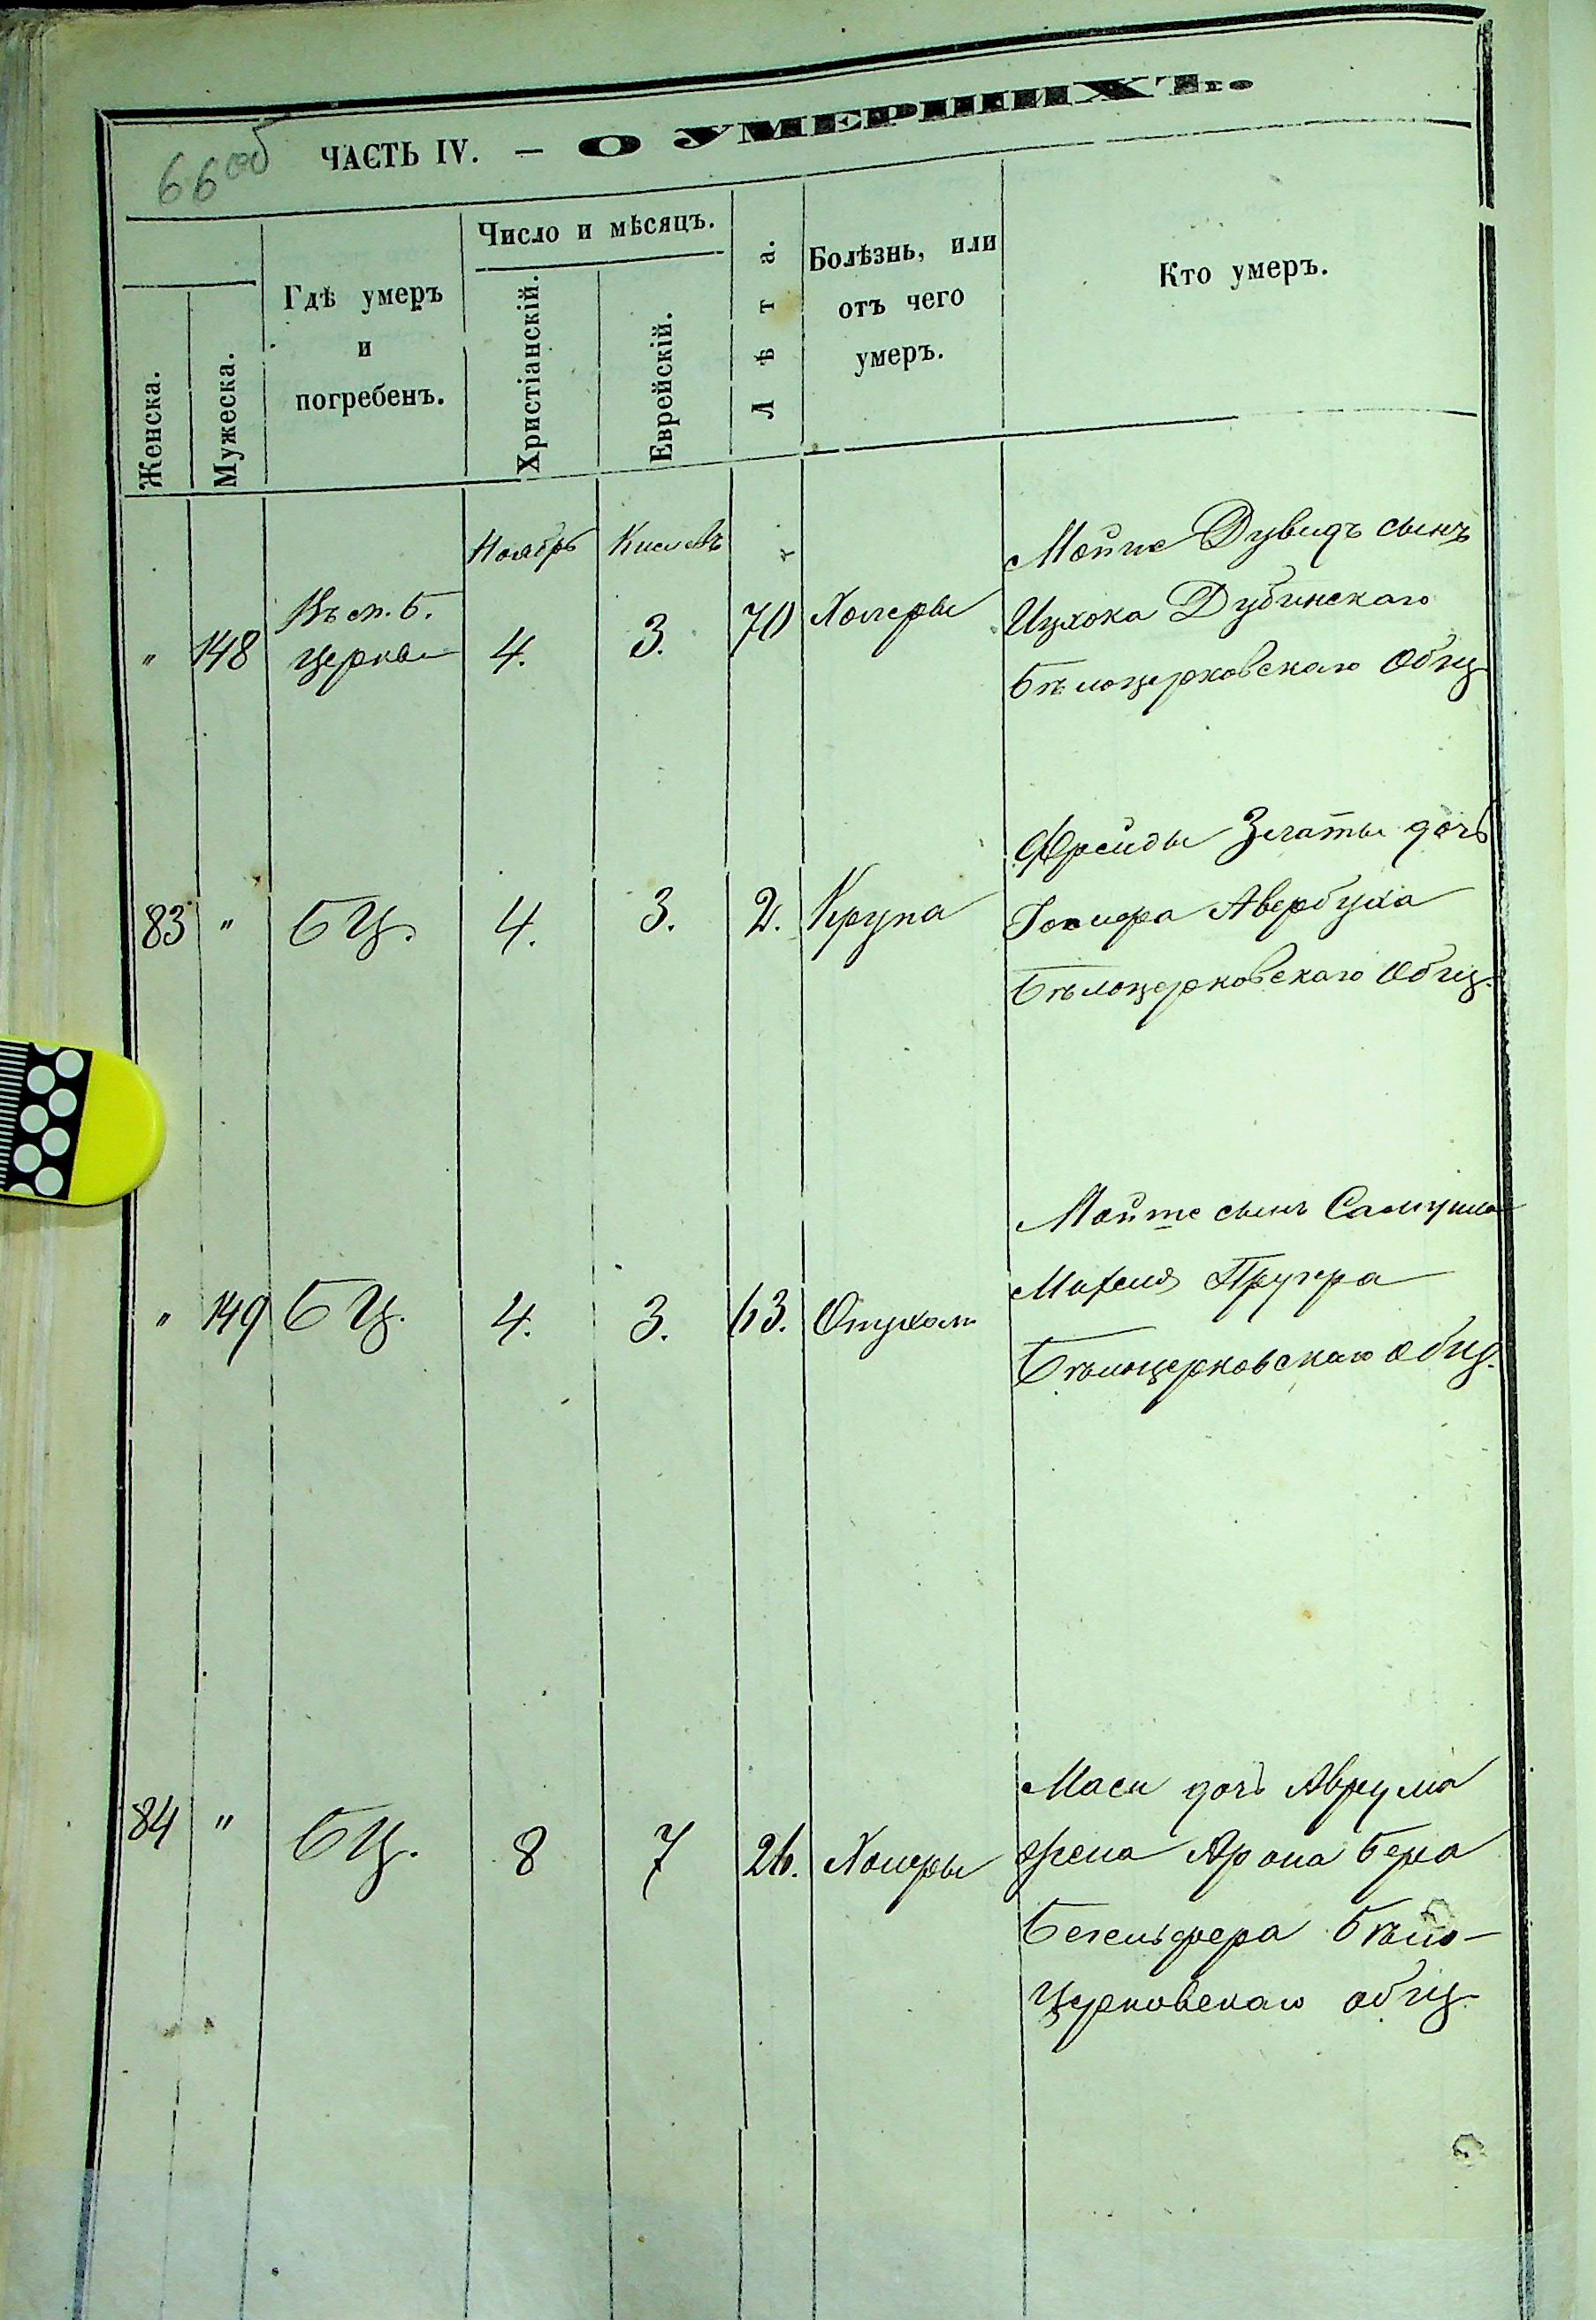 66об
ЧАСТЬ IV. — О УМЕРШИХЪ.
Женска.
Мужеска.
Гдѣ умеръ
и
погребенъ.
Число и мѣсяцъ.
Христіанскій.
Еврейскій.
Лѣта.
Болѣзнь, или
отъ чего
умеръ.
Кто умеръ.
Ноябрь Кислевъ
" 148 Въ м. Б. церкви 4. 3. 70 Холеры
Мойше Дувидъ сынъ
Ицхока Дубинскаго
Бѣлоцерковскаго Общ
83 " БЦ. 4. 3. 2. Крупа
Фрейды Златы дочь
Авербуха
Бѣлоцерковскаго Общ.
" 149 БЦ. 4. 3. 63. Опухоли
Мойше сынъ Самуила
Михеля
Бѣлоцерковскаго общ.
84 " БЦ. 8 7 26. Холеры
Маси дочь Аврума
жена Арона Бера
Бѣло-
церковскаго общ.